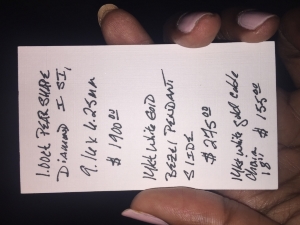 1.00ct PEAR SHAPE
DIAMOND I SI,
9.16 x 6.25mm
$ 1900.00
14kt white gold
BEZEL PENDANT
SLIDE
$ 275.00
14kt white gold cable
chain
18" $ 155.00